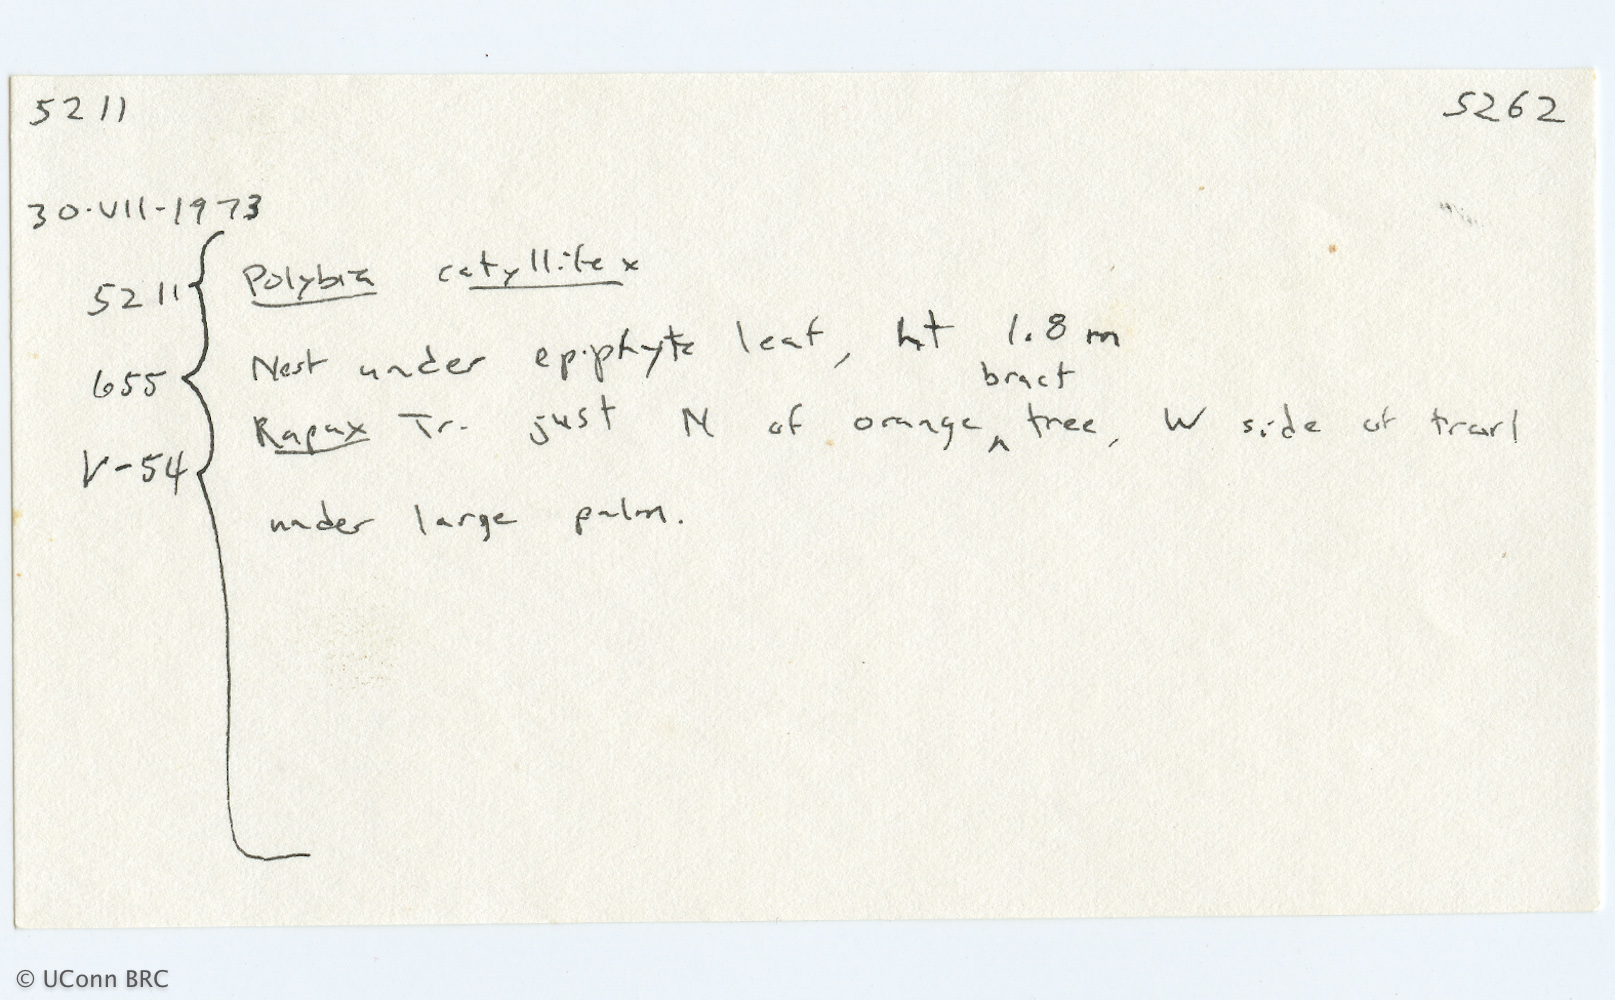 5211 5262
30-VII-1973
5211 Polybia catyllifex
655 Nest under epiphyte leaf, ht 1.8 m
Rapax Tr. just N of orange ^bract tree, W side of trail
V-54
under large palm.
© UConn BRC